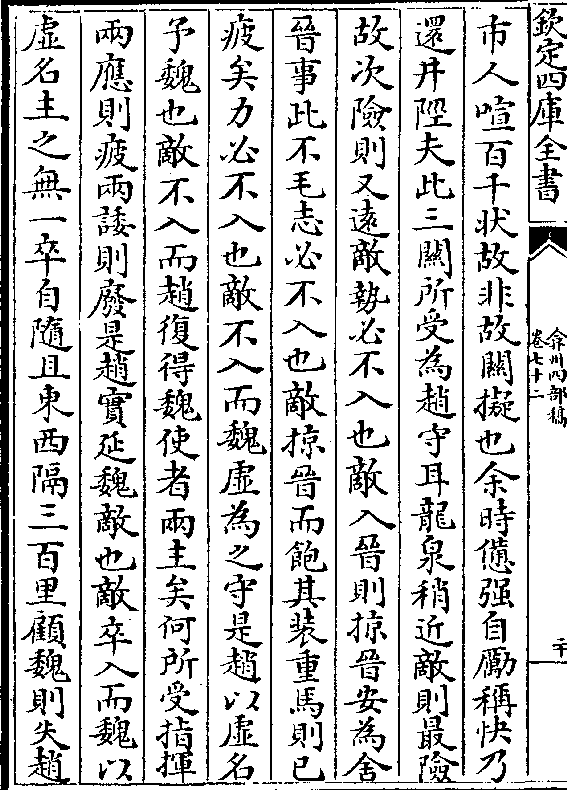 欽定四庫全書
弇州四部稿
卷七十二
二十
市人喧百千状故非故關擬也余時憊强自勵稱快乃
還井陘夫此三關所受為趙守耳龍泉稍近敵則最險
故次險則又遠敵勢必不入也敵入晉則掠晉安為舍
晉事此不毛志必不入也敵掠晉而飽其装重馬則已
疲矣力必不入也敵不入而魏虚為之守是趙以虚名
予魏也敵不入而趙復得魏使者兩主矣何所受指揮
兩應則疲兩諉則廢是趙實延魏敵也敵卒入而魏以
虚名主之無一卒自隨且東西隔三百里顧魏則失趙